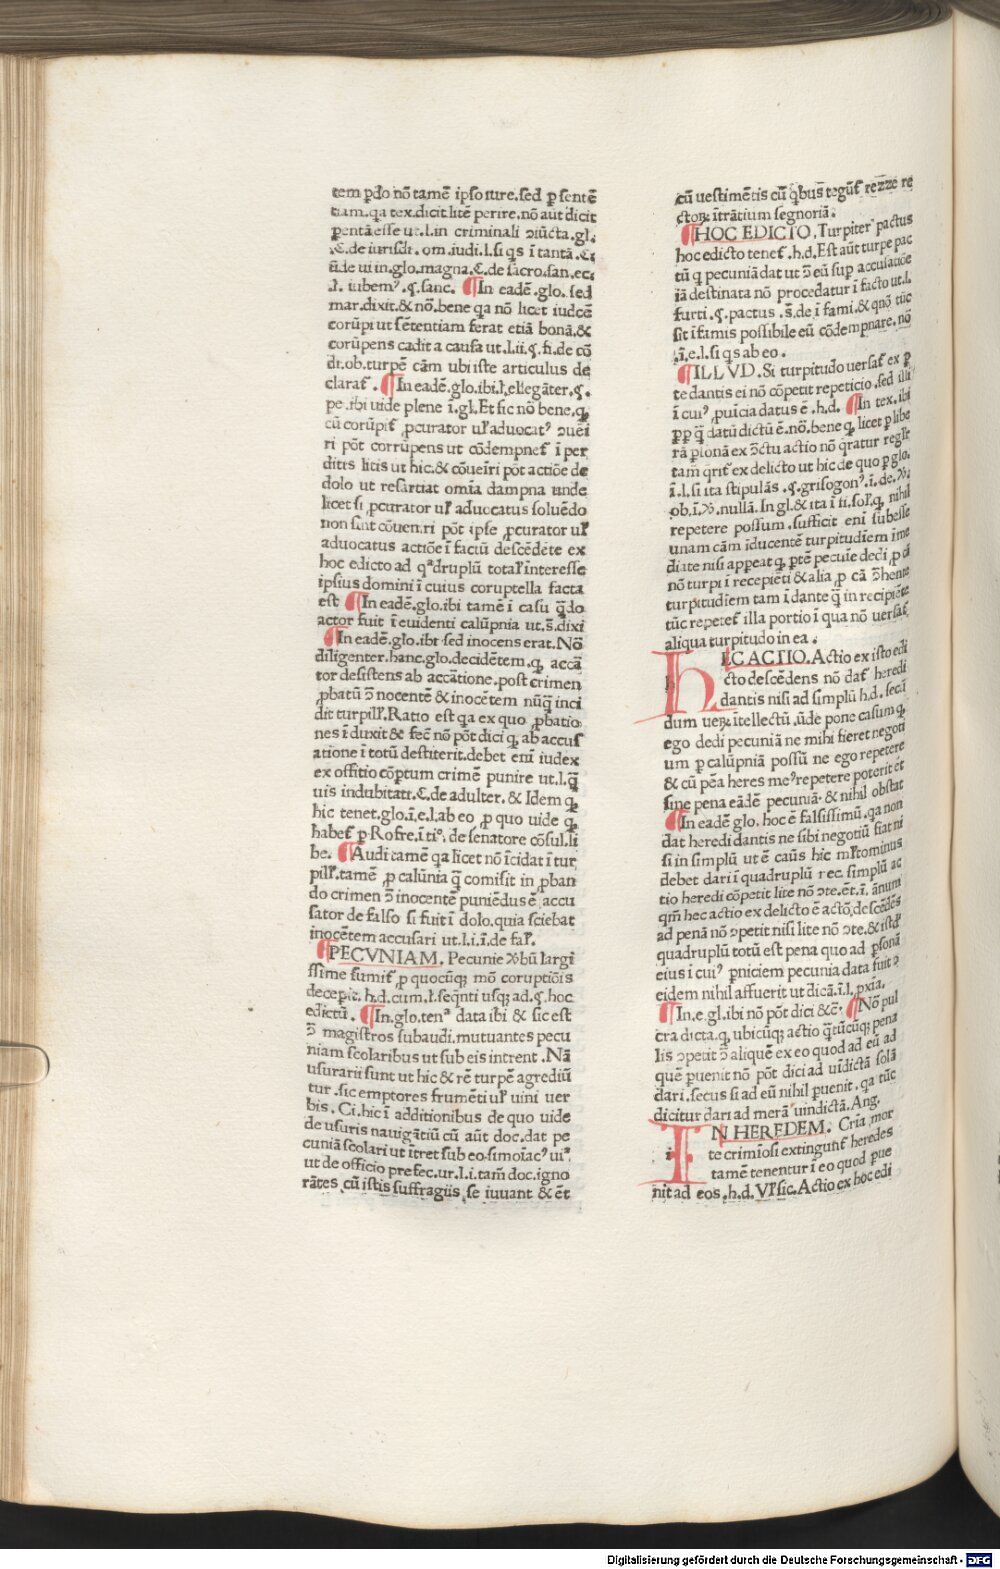 tem ꝑdo nō tamē ipso iure.sed ꝑ sentē
tiam.qa tex.dicit litē perire.nō aut dicit
ꝑentā esse ut.l.in criminali ɔiūcta.gl.
.C.de iurisdi. om.iudi.l.si qs ī tantā.C.
ūde ui in.glo.magna.C.de sacro.san.ec.
.l. iubemꝰ.¶.sanc. ¶In eadē.glo. sed
mar.dixit.& nō.bene qa nō licet iudcē
corūpi ut sētentiam ferat etiā bonā.&
corūpens cadit a causa ut.l.ii.¶.fi.de cō
di.ob.turpē cām ubi iste articulus de
clarat . ¶In eadē.glo.ibi.l.ellegāter.¶.
pe.ibi uide plene ī.gl.Et sic nō bene.q
cū corūpit ꝓcurator uł aduocatꝰ ɔuēi
ri pōt corrūpens ut cōdempnet ī per
ditis litis ut hic.& cōueīri pōt actiōe de
dolo ut resartiat omīa dampna unde
licet si ꝓcurator uł aduocatus soluēdo
non sint cōuenīri pōt ipse ꝓcurator uł
aduocatus actiōe ī factū descēdēte ex
hoc edicto ad qᵃdruplū total interesse
ipsius domini ī cuius coruptella facta
est ¶In eadē.glo.ibi tamē ī casu q̄do
actor fuit ī euidenti calūpnia ut.s̄.dixi
¶In eadē.glo.ibi sed inocens erat. Nō
diligenter.hanc.glo.decidētem.q accā
tor desistens ab accātione.post crimen
ꝓbatū ɔ̄ nocentē & inocētem nūq̄ inci
dit turpiłł.Ratio est qa ex quo ꝓbatio
nes ī duxit & fecē nō pōt dici q ab accus
atione ī totū destiterit.debet enī iudex
ex offitio cōptum crimē punire ut.l.q̄
uis indubitati.C.de adulter. & Idem q
hic tenet.glo.ī.e.l.ab eo ꝓ quo uide q
habet ꝑ Rofre.ī tiº. de senatore cōsul.li
be. ¶Audi tamē qa licet nō īcidat ī tur
piłł.tamē ꝓ calūnia q̄ comisit in ꝓban
do crimen ɔ̄ inocentē puniēdus ē accu
sator de falso si fuit ī dolo.quia sciebat
inocētem accusari ut.l.i.ī.de fał.
¶PECVNIAM. Pecunie ꝟbū largi
ssime sumit ꝑ quocūqꝫ mō coruptiōis
decepit. h.d.cum.l.seqnti usqꝫ ad.¶.hoc
edictū . ¶In.glo.tenᵃ data ibi & sic est
ɔ̄ magistros subaudi.mutuantes pecu
niam scolaribus ut sub eis intrent . Nā
usurarii sunt ut hic & rē turpē agrediū
tur .sic emptores frumēti uł uini uer
bis. Ci.hic ī additionibus de quo uide
de usuris nauigātiū cū aūt doc.dat pe
cuniā scolari ut ītret sub eo.simoīacꝰ uiꝰ.
ut de officio prefec.ur.l.i.tam̄ doc.igno
rātes cū istis suffragiis se iuuant & ēt
cū uestimētis cū qbus tegūt rezze re
ctoꝝ ītrātium segnoriā.
¶HOC EDICTO. Turpiter pactus
hoc edicto tenet .h.d.Est aūt turpe pac
tū q pecuniā dat ut ɔ̄ eū sup accusatiōe
iā destinata nō procedatur ī facto ut.l.
furti.¶.pactus .s̄.de ī fami.& qnō tūc
sit īfamis possibile eū cōdempnare.nō
.ī.e.l.si qs ab eo .
¶ILLVD. Si turpitudo uersat ex ꝑ
te dantis ei nō cōpetit repeticio.sed illi
ī cuiꝰ ꝑuīcia datus ē .h.d. ¶In tex.ibi
ꝓꝑ q̄ datū dictū ē.nō.bene q licet ꝑ libe
rā ꝑsonā ex ɔ̄ctu actio nō qratur reglr
tam̄ qrit ex delicto ut hic de quo ꝑ glo.
ī.l.si ita stipulās .¶.grisogonꝰ.ī.de.ꝟ.
ob.ī.ꝟ.nullā. In gl.& ita ī fi.sol.q nihil
repetere possum .sufficit enī subesse
unam cām īducentē turpitudīem īme
diate nisi appeat q ꝑtē pecuīe dedi ꝓ cā
nō turpi ī recepiēti & alia ꝓ cā ɔ̄hente
turpitudīem tam ī dante q̄ in recipiēte
tūc repetet illa portio ī qua nō uersat
aliqua turpitudo in ea .
HEC ACTIO. Actio ex isto edi
cto descēdens nō dat heredi
dantis nisi ad simplū h.d. secū
dum ueꝝ ītellectū .ūde pone casum q
ego dedi pecuniā ne mihi fieret negoti
um ꝑ calūpniā possū ne ego repetere
& cū pēa heres meꝰ repetere poterit ēt
sine pena eādē pecuniā & nihil obstat
¶In eadē glo. hoc ē falsissimū.qa non
dat heredi dantis ne sibi negotiū fiat ni
si in simplū ut ē cāus hic mł tominus
debet dari ī quadruplū rec simplū ac
tio heredi cōpetit lite nō ɔte.ēt.ī. ānum
qm̄ hec actio ex delicto ē actō.descēdēs
ad penā nō ɔpetit nisi lite nō ɔte.& istd
quadruplū totū est pena quo ad ꝑsonā
eius ī cuiꝰ ꝑniciem pecunia data fuit ɔ
eidem nihil affuerit ut dicā.ī.l.pxīa.
¶In.e.gl.ibi nō pōt dici &c. ¶Nō pul
cra dicta.q ubicūqꝫ actio q̄tūcūqꝫ pena
lis ɔpetit ɔ̄ aliquē ex eo quod ad eū ad
quē ꝑuenit nō pōt dici ad uīdictā solā
dari.secus si ad eū nihil ꝑuenit.qa tūc
dicitur dari ad merā uindictā.Ang.
IN HEREDEM. Crīa mor
te crimīosi extingunt heredes
tamē tenentur ī eo quod pue
nit ad eos .h.d. Vł sic. Actio ex hoc edi
Digitalisierung gefördert durch die Deutsche Forschungsgemeinschaft - DFG